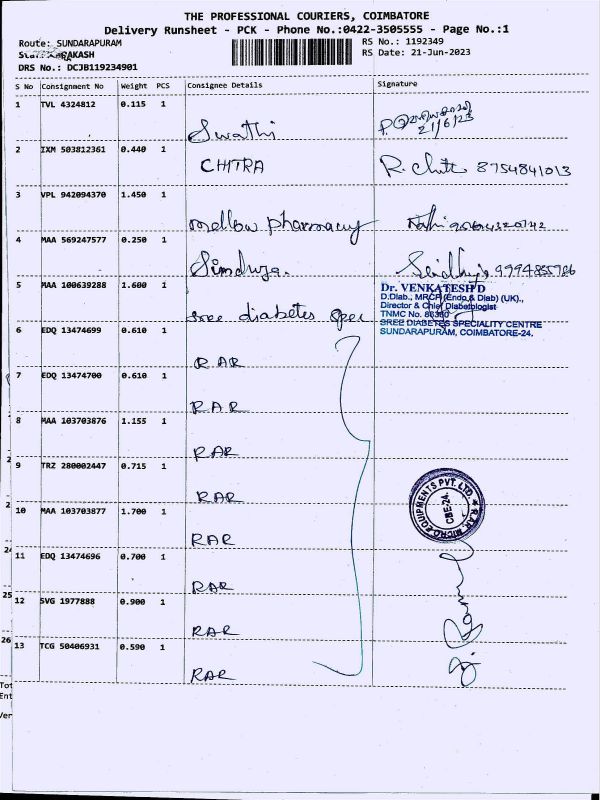 THE PROFESSIONAL COURIERS, COIMBATORE
Delivery Runsheet - PCK - Phone No.:0422-3505555 - Page No.:1
Route: SUNDARAPURAM
RS No.: 1192349
RS Date: 21-Jun-2023
DRS No.: DCJB119234901
S No Consignment No Weight PCS Consignee Details Signature
1 TVL 4324812 0.115 1 Swathi
21/6/23
2 IXM 503812361 0.440 1 CHITRA R. Chitt 8754841013
3 VPL 942094370 1.450 1 mellow pharmacy
4 MAA 569247577 0.250 1 9994855786
5 MAA 100639288 1.600 1 sree diabetes spec
Dr. VENKATESH D
D.Diab., MRCP (Endo & Diab) (UK).,
Director & Chief Diabetologist
TNMC No.
SREE DIABETES SPECIALITY CENTRE
SUNDARAPURAM, COIMBATORE-24.
6 EDQ 13474699 0.610 1 RAR
7 EDQ 13474700 0.610 1 RAR
8 MAA 103703876 1.155 1 RAR
9 TRZ 280002447 0.715 1 RAR
10 MAA 103703877 1.700 1 RAR
R.A.R. MICRO EQUIPMENTS PVT. LTD.
CBE-24.
11 EDQ 13474696 0.700 1 RAR
12 SVG 1977888 0.900 1 RAR
13 TCG 50406931 0.590 1 RAR
24
25
26
Tot
Ent
Ver